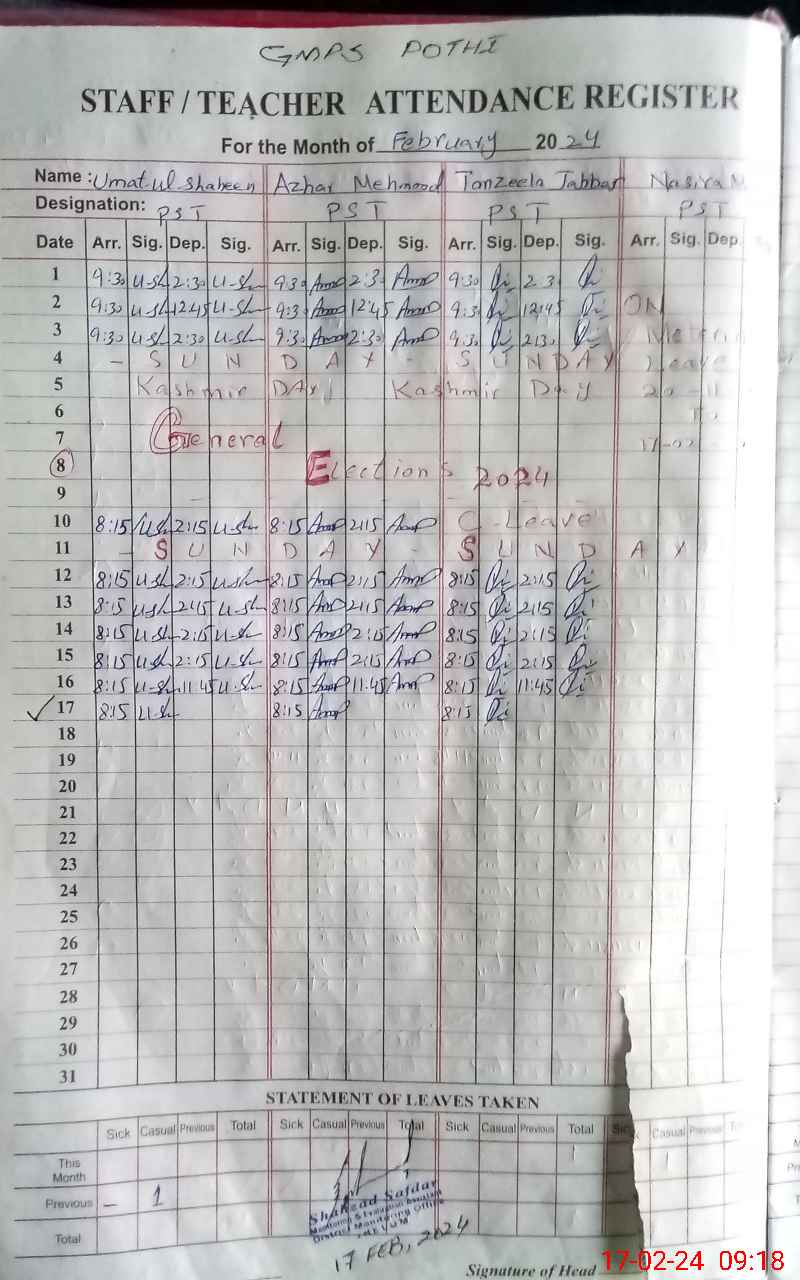 GMPS POTHI
STAFF / TEACHER ATTENDANCE REGISTER
For the Month of February 2024
Name : Umat-ul-shaheen Azhar Mehmood Tanzeela Jabbar Nasira M
Designation: PST PST PST PST
Date Arr. Sig. Dep. Sig. Arr. Sig. Dep. Sig. Arr. Sig. Dep. Sig. Arr. Sig. Dep.
1 9:30 U-sh 2:30 U-sh 9:30 2:30 9:30 2:30
2 9:30 U-sh 12:45 U-sh 9:30 12:45 9:30 12:45 ON
3 9:30 U-sh 2:30 U-sh 9:30 2:30 9:30 2:30
4 - S U N D A Y - S U N D A Y Leave
5 Kashmir DAY Kashmir Day
6 To
7 General 17-02
8 Elections 2024
9
10 8:15 U-sh 2:15 U-sh 8:15 2:15 C-Leave
11 - S U N D A Y - S U N D A Y
12 8:15 U-sh 2:15 U-sh 8:15 2:15 8:15 2:15
13 8:15 U-sh 2:15 U-sh 8:15 2:15 8:15 2:15
14 8:15 U-sh 2:15 U-sh 8:15 2:15 8:15 2:15
15 8:15 U-sh 2:15 U-sh 8:15 2:15 8:15 2:15
16 8:15 U-sh 11:45 U-sh 8:15 11:45 8:15 11:45
17 8:15 U-sh 8:15 8:15
18
19
20
21
22
23
24
25
26
27
28
29
30
31
STATEMENT OF LEAVES TAKEN
Sick Casual Previous Total Sick Casual Previous Total Sick Casual Previous Total Sick Casual Previous
This Month 1 1
Previous - 1
Total
Shahzad Safdar
Monitoring & Evaluation Assistant
District Monitoring Office
JHELUM
17 FEB, 2024
Signature of Head
17-02-24 09:18